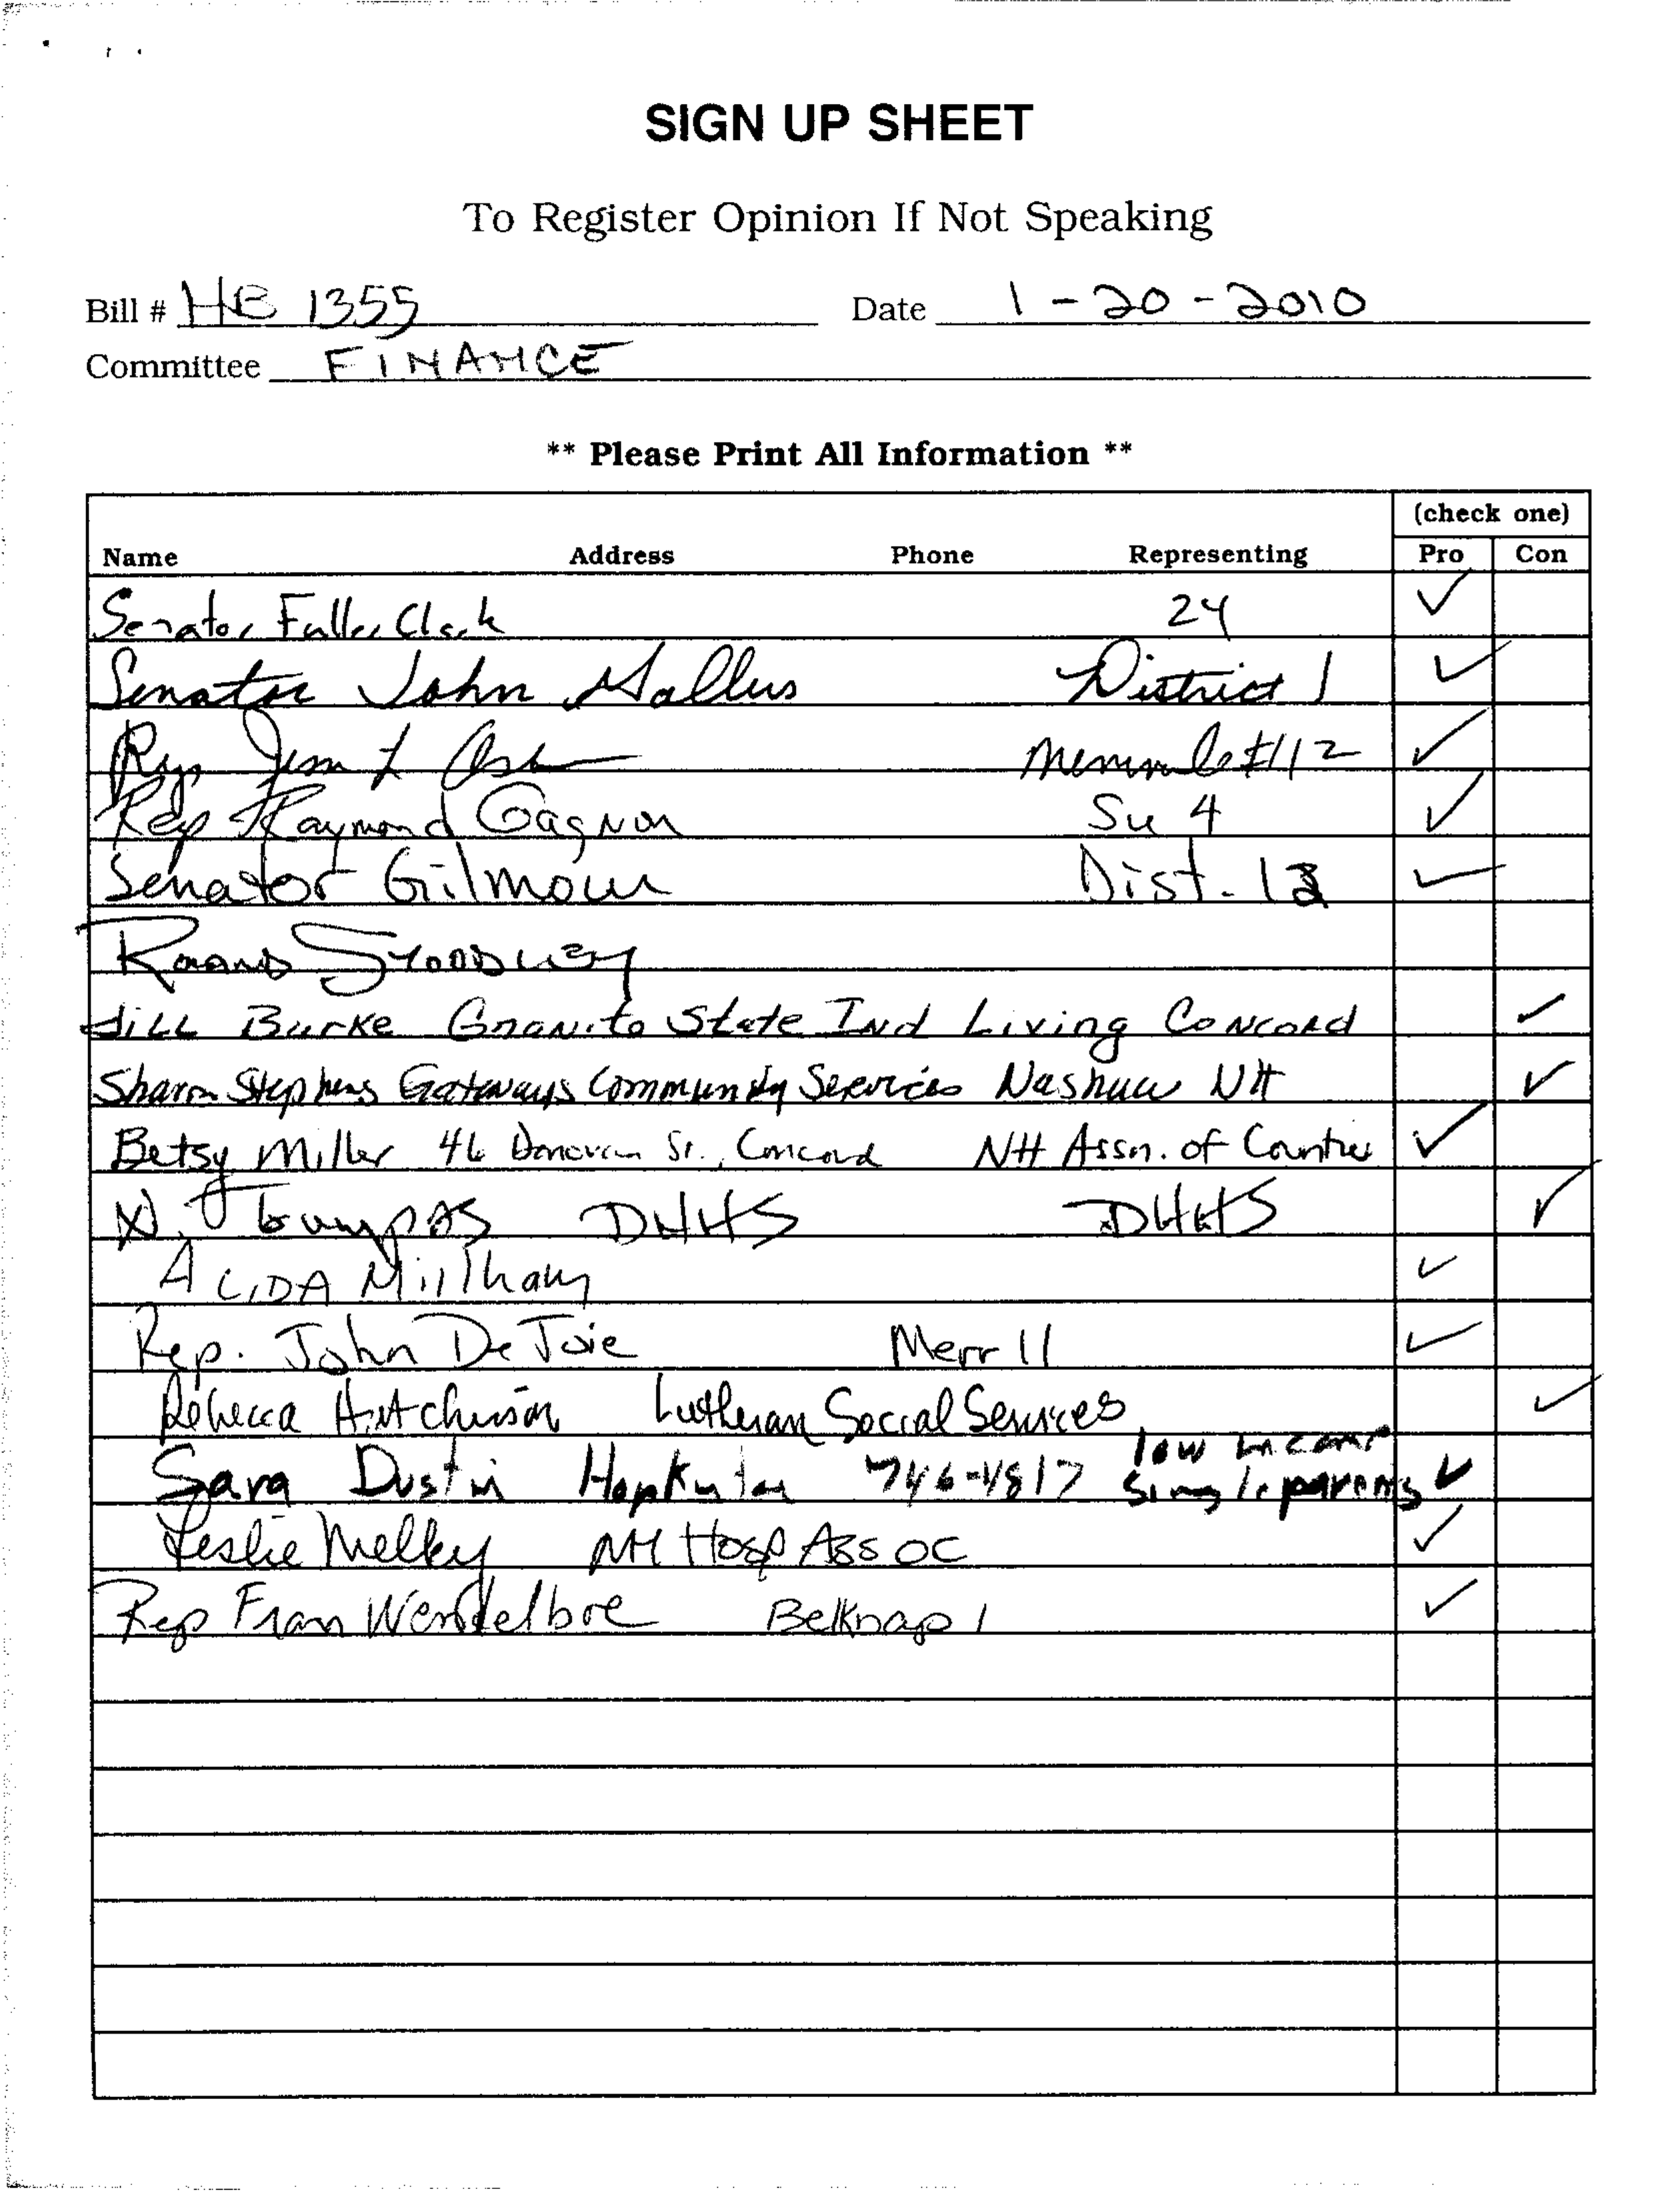 SIGN UP SHEET
To Register Opinion If Not Speaking
Bill # HB 1355 Date 1-20-2010
Committee FINANCE
** Please Print All Information **
(check one)
Name Address Phone Representing Pro Con
Senator Fuller Clark 24 ✓
Senator John Gallus District 1 ✓
Rep ✓
Rep Raymond Gagnon Su 4 ✓
Senator Gilmour Dist. ✓

Jill Burke Granite State Ind Living Concord ✓
Sharon Stephens Gateways Community Services Nashua NH ✓
Betsy Miller 46 Donovan St., Concord NH Assn. of Counties ✓
DHHS DHHS ✓
Alida Millham ✓
Rep. John DeJoie Merr 11 ✓
Rebecca Hutchinson Lutheran Social Services ✓
low income
Sara Dustin Hopkinton 746-4817 single parents ✓
Leslie Melby NH Hosp Assoc ✓
Rep Fran Wendelboe Belknap 1 ✓